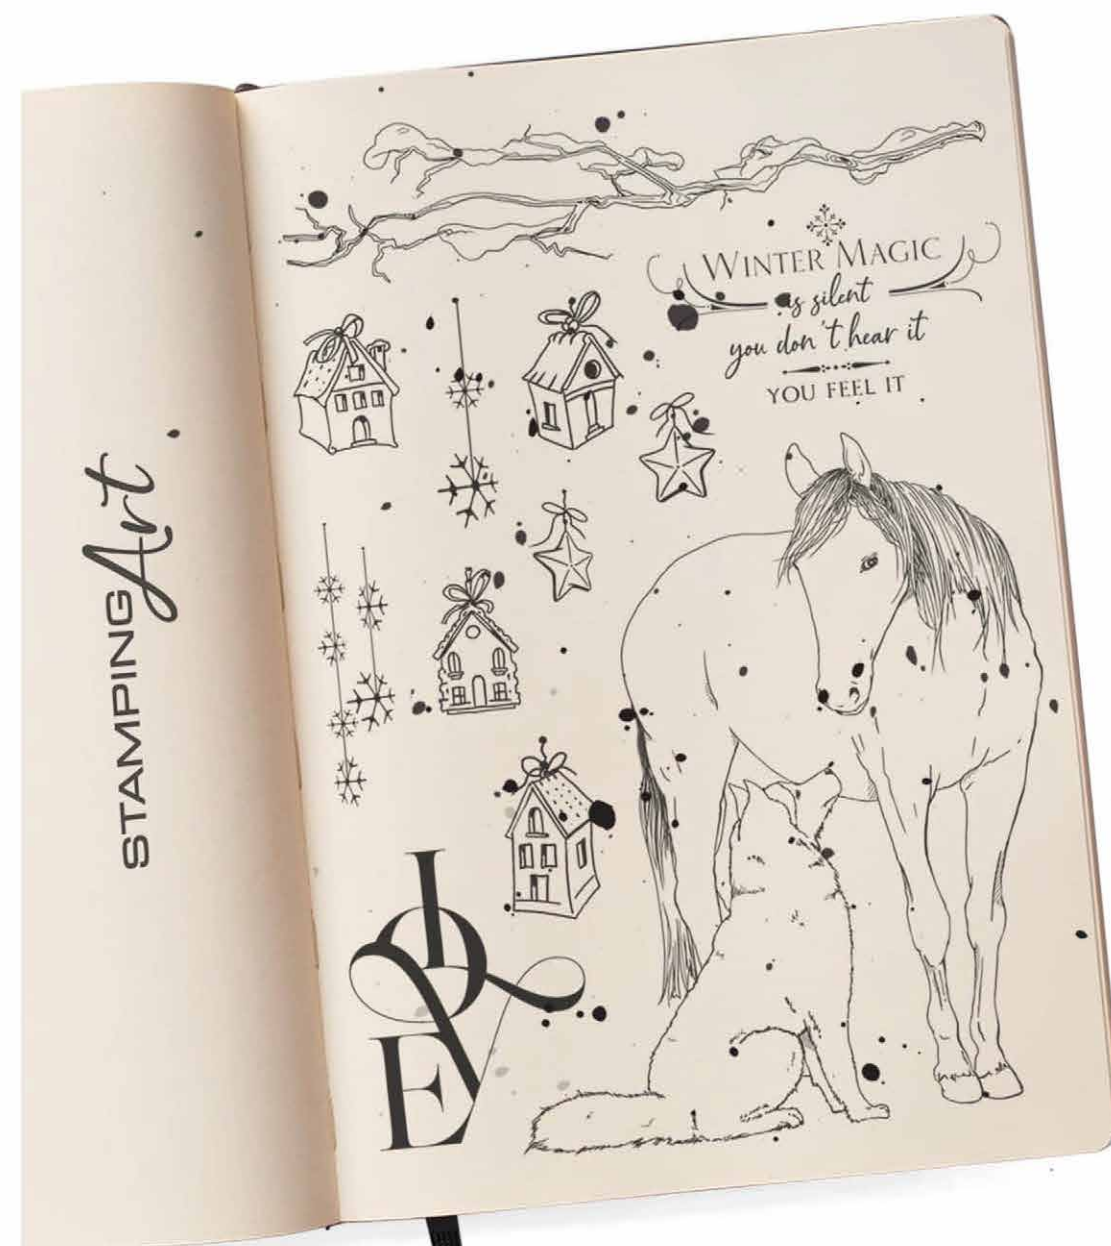 STAMPINGArt
WINTER MAGIC
is silent
you don't hear it
YOU FEEL IT
LOVE